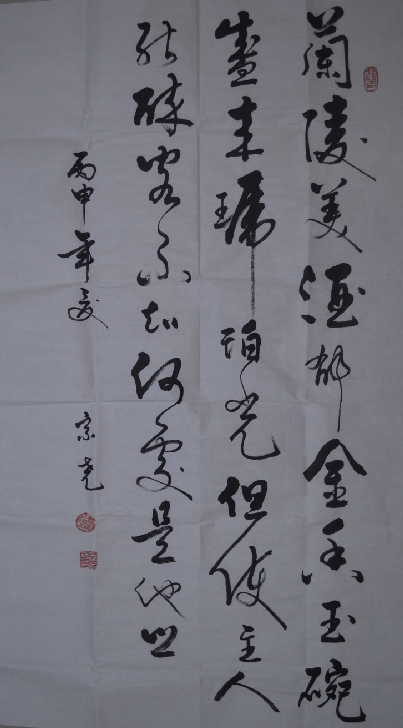 蘭陵美酒郁金香玉碗
盛来琥珀光但使主人
能醉客不知何處是他鄉
丙申年夏
宗尧